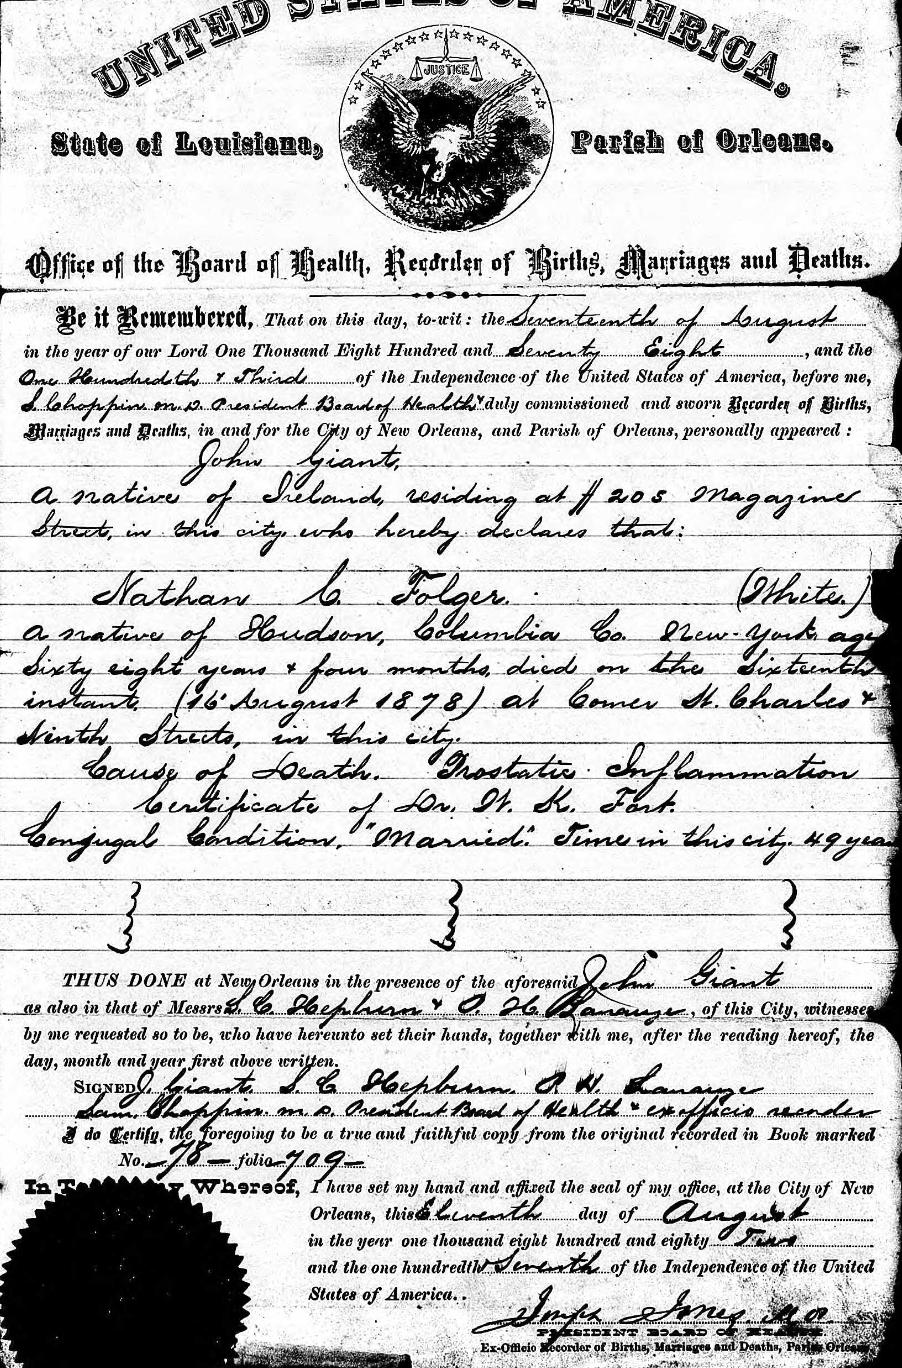 UNITED STATES OF AMERICA.
JUSTICE
State of Louisiana, Parish of Orleans.
Office of the Board of Health, Recorder of Births, Marriages and Deaths.
Be it Remembered, That on this day, to-wit: the Seventeenth of August
in the year of our Lord One Thousand Eight Hundred and Seventy Eight, and the
One Hundredth & Third of the Independence of the United States of America, before me,
S. Choppin M.D. President Board of Health & duly commissioned and sworn Recorder of Births,
Marriages and Deaths, in and for the City of New Orleans, and Parish of Orleans, personally appeared:
John Giant,
a native of Ireland, residing at # 205 Magazine
Street, in this city who hereby declares that:
Nathan C. Folger. (White.)
a native of Hudson, Columbia Co. New-York age
Sixty eight years & four months, died on the Sixteenth
instant. (16 August 1878) at Corner St. Charles &
Ninth Streets, in this city.
Cause of Death. Prostatic Inflammation
Certificate of Dr. W. K. Fort.
Conjugal Condition, "Married". Time in this city. 49 yea
THUS DONE at New Orleans in the presence of the aforesaid John Giant
as also in that of Messrs S. C. Hepburn & P. H. Lanauze, of this City, witnesses
by me requested so to be, who have hereunto set their hands, together with me, after the reading hereof, the
day, month and year first above written.
SIGNED J. Giant. S. C Hepburn. P. H. Lanauze
Sam. Choppin. M.D. President Board of Health & ex officio recorder
I do Certify, the foregoing to be a true and faithful copy from the original recorded in Book marked
No. 78 folio 709
In Whereof, I have set my hand and affixed the seal of my office, at the City of New
Orleans, this Eleventh day of August
in the year one thousand eight hundred and eighty Two
and the one hundredth & Seventh of the Independence of the United
States of America..
Joseph Jones. M.D.
PRESIDENT BOARD OF HEALTH
Ex-Officio Recorder of Births, Marriages and Deaths, Parish Orleans